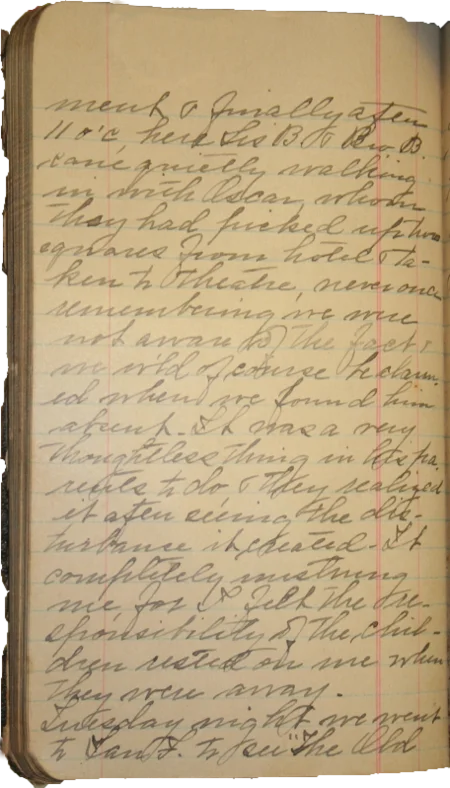 ment & finally after
11 o'c, here Sis B & Bro B.
came quietly walking
in with Oscar, whom
they had picked up two
squares from hotel & ta-
ken to Theatre, never once
remembering we were
not aware of the fact &
we w'ld of course be alarm-
ed when we found him
absent. It was a very
thoughtless thing in his pa-
rents to do & they realized
it after seeing the dis-
turbance it created. It
completely unstrung
me, for I felt the re-
sponsibility of the chil-
dren rested on me when
they were away.
Tuesday night we went
to San F. to see "The Old